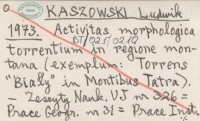 KASZOWSKI Ludwik
1973. Activitas morphologica
torrentium in regione mon-
tana (exemplum: Torrens
"Biały" in Montibus Tatra).
- Zeszyty Nauk. UJ nr 326 =
Prace Geogr. nr 31 = Prace Inst.